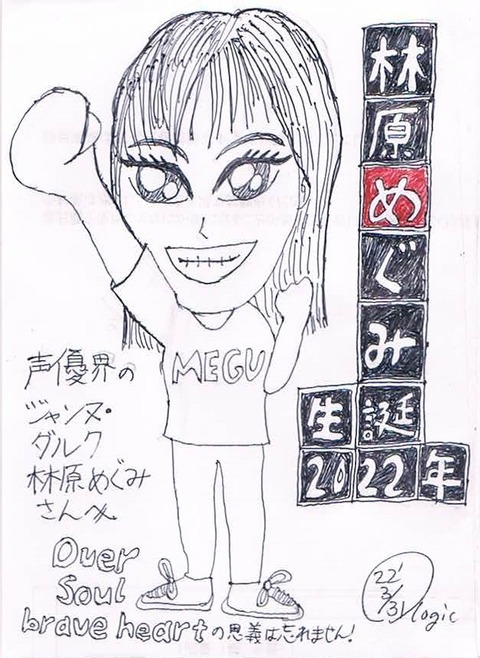 林原めぐみ
生誕
2022年
MEGU
声優界の
ジャンヌ・
ダルク
林原めぐみ
さんへ
Over
Soul
brave heartの恩義は忘れません!
22'
3/31
logic